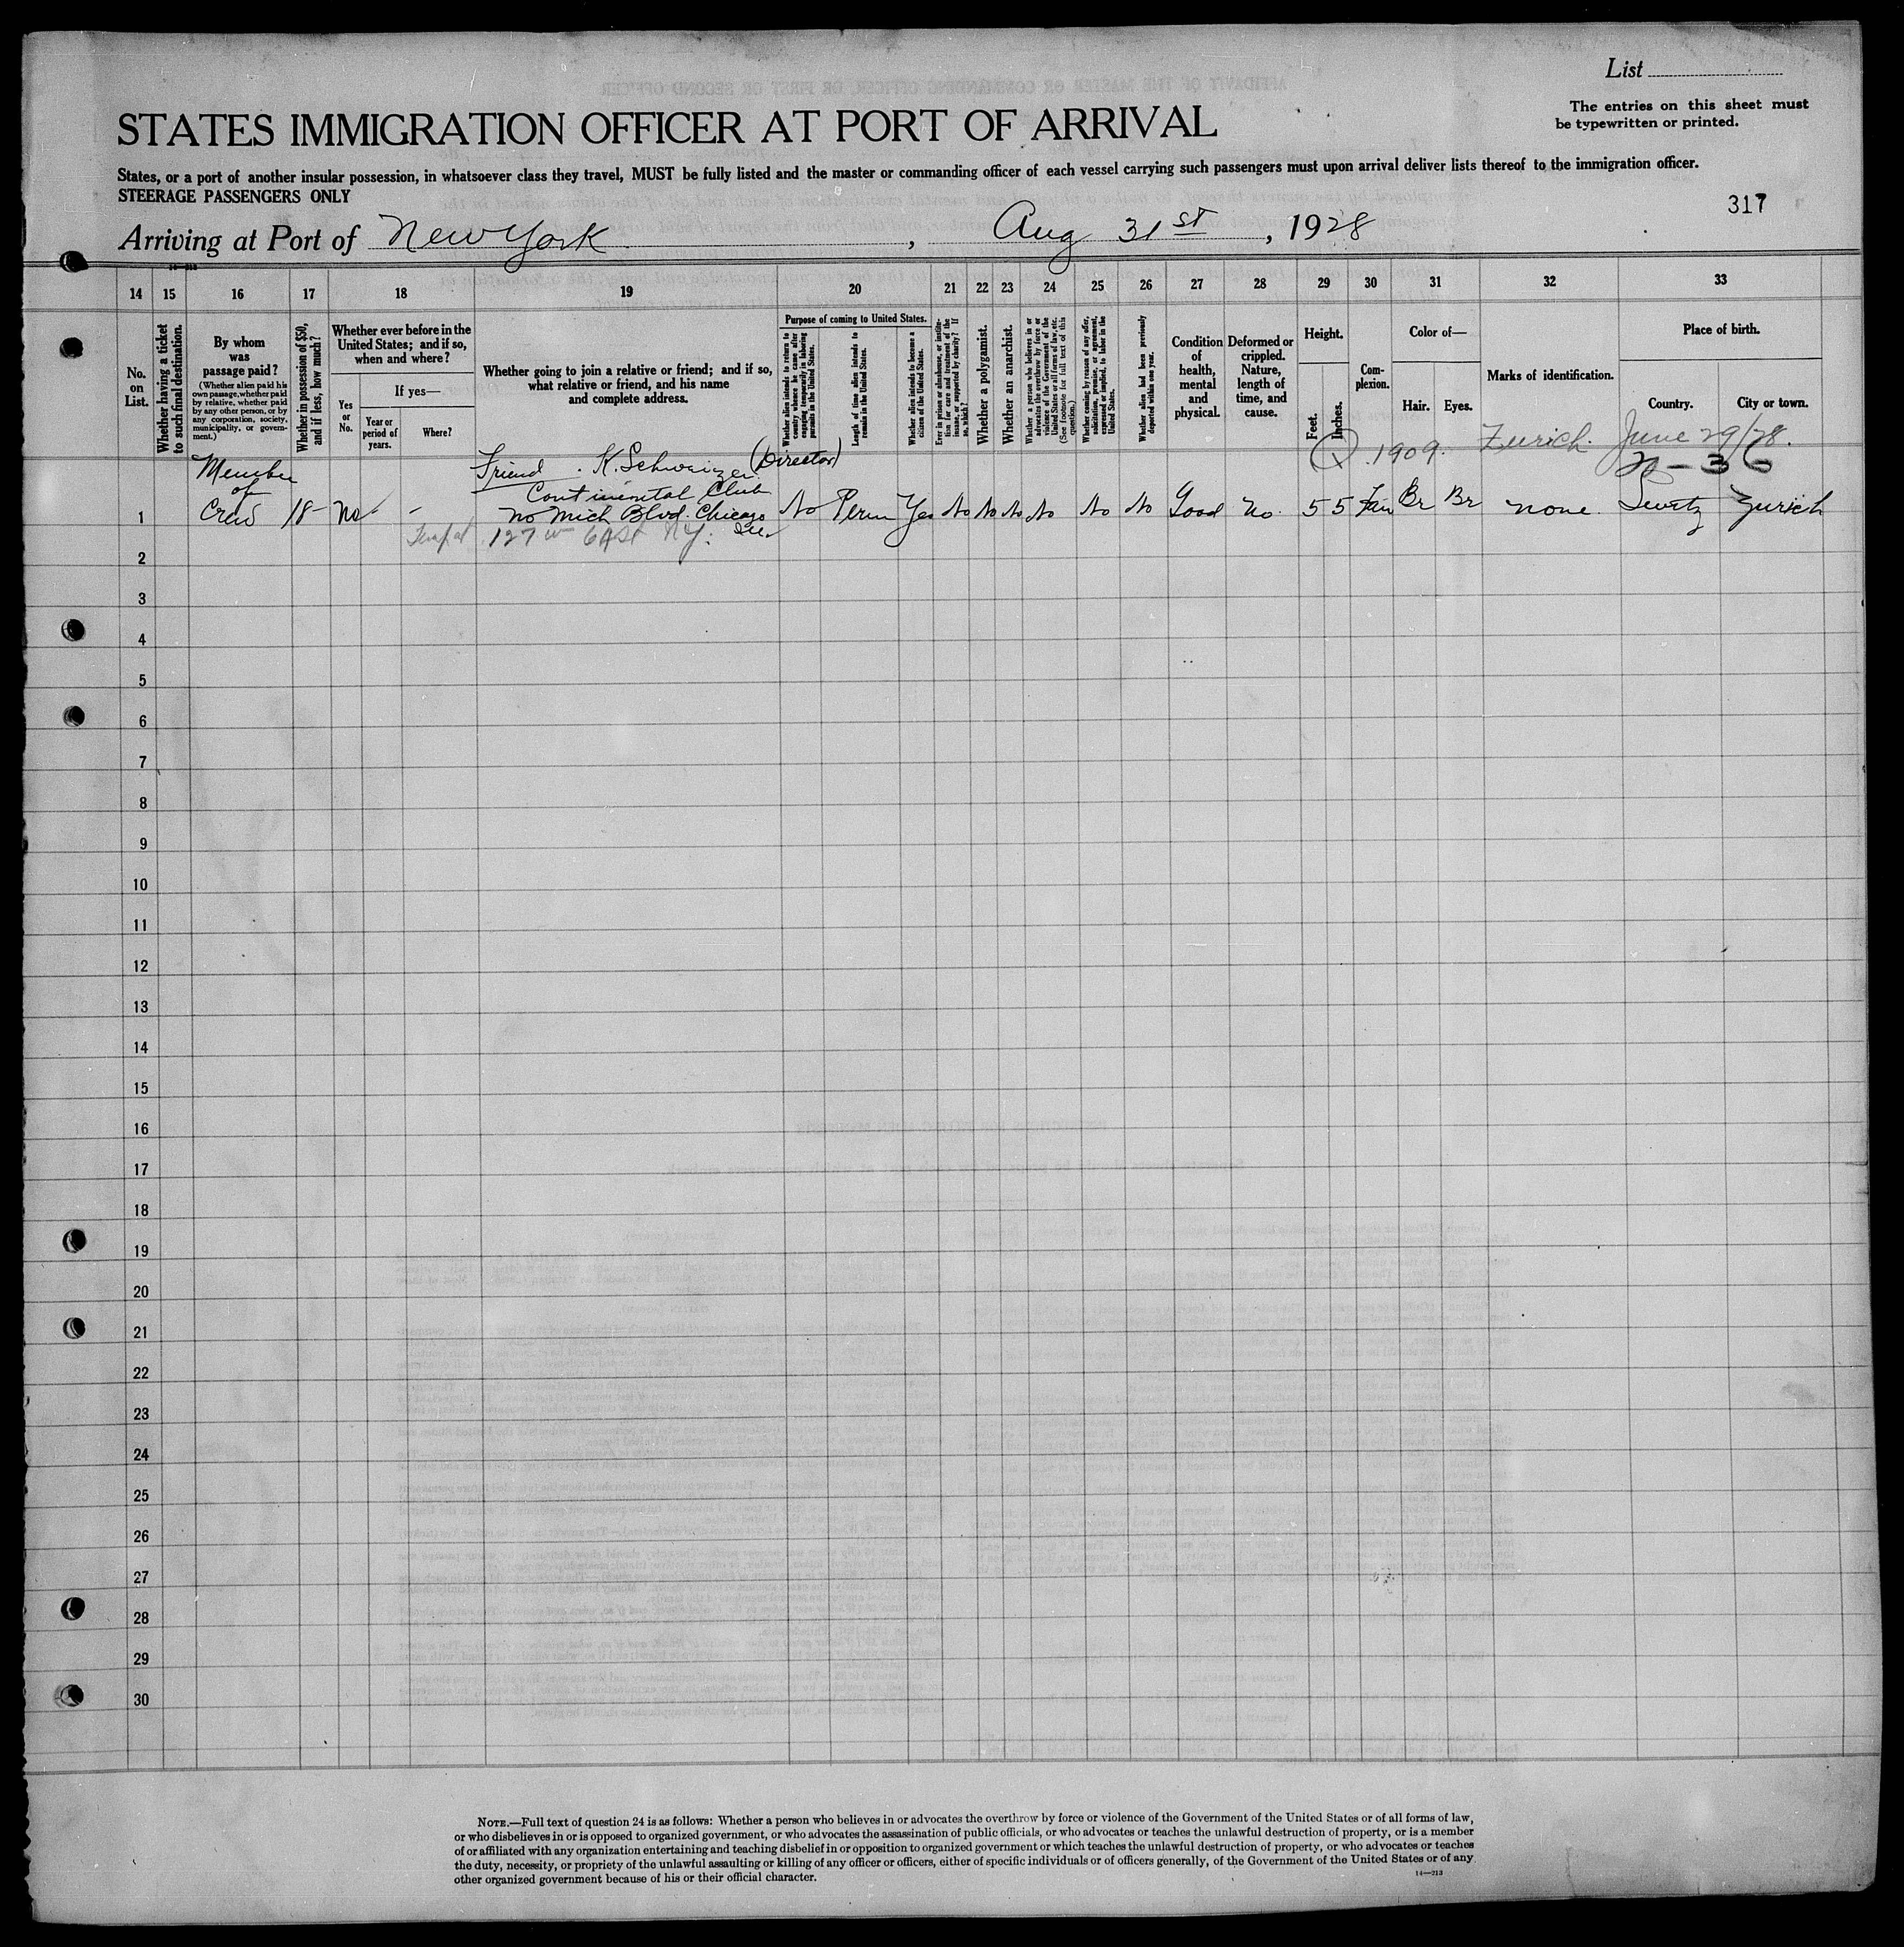 List
The entries on this sheet must
be typewritten or printed.
STATES IMMIGRATION OFFICER AT PORT OF ARRIVAL
States, or a port of another insular possession, in whatsoever class they travel, MUST be fully listed and the master or commanding officer of each vessel carrying such passengers must upon arrival deliver lists thereof to the immigration officer.
STEERAGE PASSENGERS ONLY
317
Arriving at Port of New York, Aug 31st, 1928
14 15 16 17 18 19 20 21 22 23 24 25 26 27 28 29 30 31 32 33
No. on List.
Whether having a ticket to such final destination.
By whom was passage paid?
(Whether alien paid his own passage, whether paid by relative, whether paid by any other person, or by any corporation, society, municipality, or government.)
Whether in possession of $50, and if less, how much?
Whether ever before in the United States; and if so, when and where?
Yes or No.
If yes—
Year or period of years.
Where?
Whether going to join a relative or friend; and if so, what relative or friend, and his name and complete address.
Purpose of coming to United States.
Whether alien intends to return to country whence he came after engaging temporarily in laboring pursuits in the United States.
Length of time alien intends to remain in the United States.
Whether alien intends to become a citizen of the United States.
Ever in prison or almshouse, or institution for care and treatment of the insane, or supported by charity? If so, which?
Whether a polygamist.
Whether an anarchist.
Whether a person who believes in or advocates the overthrow by force or violence of the Government of the United States or all forms of law, etc. (See footnote for full text of this question.)
Whether coming by reason of any offer, solicitation, promise, or agreement, expressed or implied, to labor in the United States.
Whether alien had been previously deported within one year.
Condition of health, mental and physical.
Deformed or crippled. Nature, length of time, and cause.
Height.
Feet.
Inches.
Complexion.
Color of—
Hair.
Eyes.
Marks of identification.
Place of birth.
Country.
City or town.
Q 1909. Zurich. June 29/28.
36
Member
of
Crew
Friend. K. Schweizer (Director)
Continental Club
1 18- No - No Mich Blvd. Chicago No Perm Yes No No No No No No Good No. 5 5 Fair Br Br none. Zurich
127 W 64 St NY. Ill.
2
3
4
5
6
7
8
9
10
11
12
13
14
15
16
17
18
19
20
21
22
23
24
25
26
27
28
29
30
NOTE.—Full text of question 24 is as follows: Whether a person who believes in or advocates the overthrow by force or violence of the Government of the United States or of all forms of law,
or who disbelieves in or is opposed to organized government, or who advocates the assassination of public officials, or who advocates or teaches the unlawful destruction of property, or is a member
of or affiliated with any organization entertaining and teaching disbelief in or opposition to organized government or which teaches the unlawful destruction of property, or who advocates or teaches
the duty, necessity, or propriety of the unlawful assaulting or killing of any officer or officers, either of specific individuals or of officers generally, of the Government of the United States or of any
other organized government because of his or their official character.
14—213